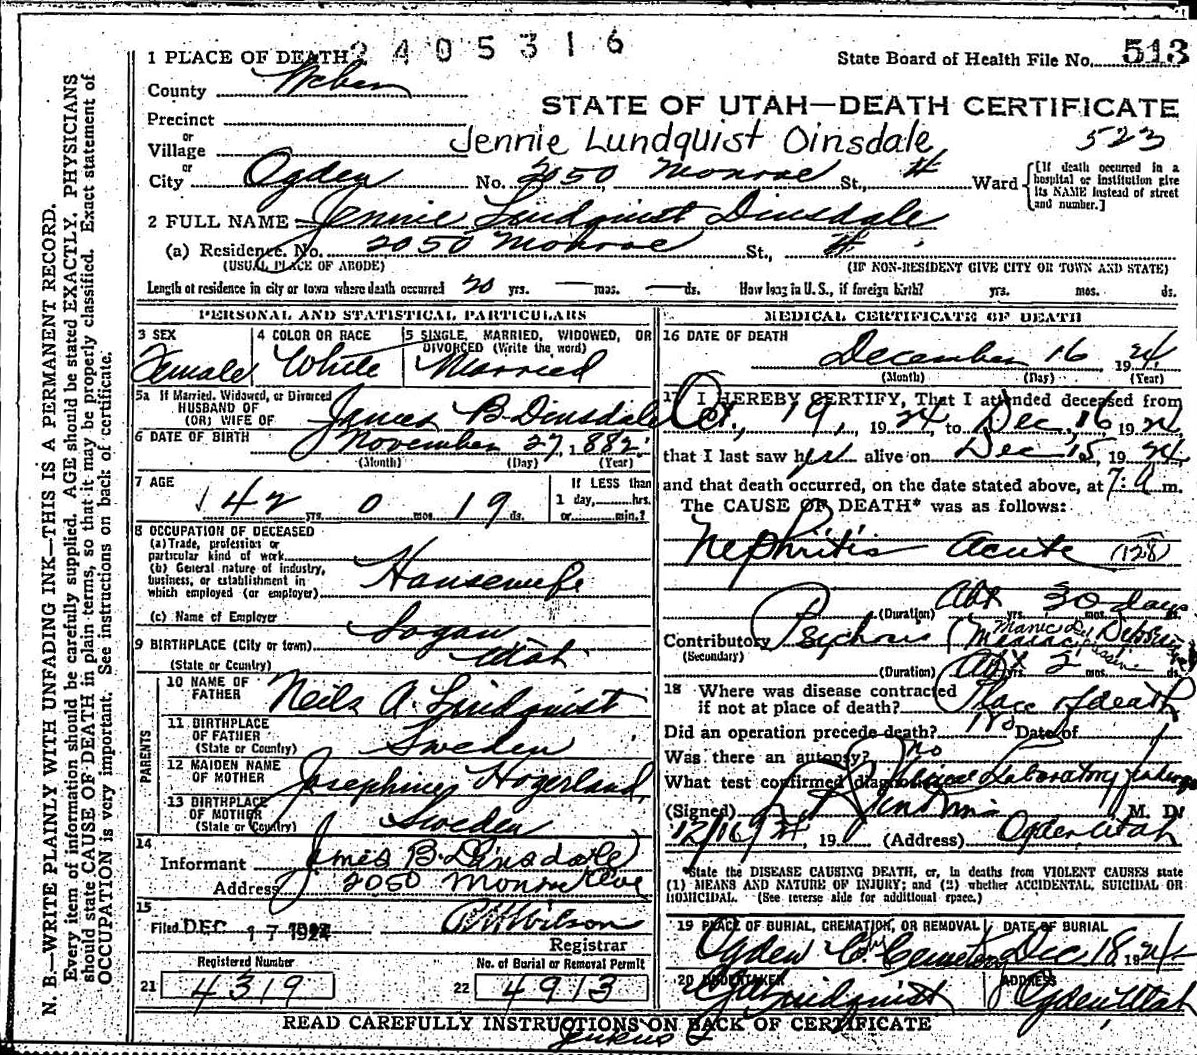 2405316
1 PLACE OF DEATH
State Board of Health File No. 513
County Weber
STATE OF UTAH—DEATH CERTIFICATE
Precinct
or
Village
Jennie Lundquist Oinsdale
523
or
City Ogden No. 2050 Monroe St., Ward
[If death occurred in a hospital or institution give its NAME instead of street and number.]
2 FULL NAME Jennie Lindquist Dinsdale
(a) Residence. No. 2050 Monroe St.,
(USUAL PLACE OF ABODE) (IF NON-RESIDENT GIVE CITY OR TOWN AND STATE)
Length of residence in city or town where death occurred 20 yrs. — mos. — ds. How long in U.S., if foreign birth? yrs. mos. ds.
PERSONAL AND STATISTICAL PARTICULARS
3 SEX
Female
4 COLOR OR RACE
White
5 SINGLE, MARRIED, WIDOWED, OR DIVORCED (Write the word)
Married
5a If Married, Widowed, or Divorced
HUSBAND OF
(OR) WIFE OF James B. Dinsdale
6 DATE OF BIRTH November 27, 1882
(Month) (Day) (Year)
7 AGE
42 yrs. 0 mos. 19 ds.
If LESS than
1 day, hrs.
or min.?
8 OCCUPATION OF DECEASED
(a) Trade, profession or
particular kind of work
(b) General nature of industry,
business, or establishment in
which employed (or employer) Housewife
(c) Name of Employer
9 BIRTHPLACE (City or town) Logan
(State or Country) Utah
PARENTS
10 NAME OF
FATHER Neils A. Lindquist
11 BIRTHPLACE
OF FATHER
(State or Country) Sweden
12 MAIDEN NAME
OF MOTHER Josephine Hogerland
13 BIRTHPLACE
OF MOTHER
(State or Country) Sweden
14
Informant James B. Dinsdale
Address 2050 Monroe Ave
15
Filed DEC 17 1924
Wilson
Registrar
Registered Number
21 4319
No. of Burial or Removal Permit
22 4913
MEDICAL CERTIFICATE OF DEATH
16 DATE OF DEATH
December 16 1924
(Month) (Day) (Year)
17 I HEREBY CERTIFY, That I attended deceased from
Oct., 19, 1924 to Dec, 16 1924
that I last saw her alive on Dec 15, 1924
and that death occurred, on the date stated above, at 7:a m.
The CAUSE OF DEATH* was as follows:
Nephritis Acute (128)
(Duration) Abt yrs. mos. 30 days ds.
Contributory Psychosis (Manic Depressive
(Secondary)
(Duration) yrs. 2 mos. ds.
18 Where was disease contracted
if not at place of death? Place of death
Did an operation precede death? no Date of
Was there an autopsy? no
What test confirmed diagnosis? Clinical Laboratory findings
(Signed) M. D.
12/16/24, 19 (Address) Ogden, Utah
*State the DISEASE CAUSING DEATH, or, in deaths from VIOLENT CAUSES state
(1) MEANS AND NATURE OF INJURY; and (2) whether ACCIDENTAL, SUICIDAL OR
HOMICIDAL. (See reverse side for additional space.)
19 PLACE OF BURIAL, CREMATION, OR REMOVAL
Ogden City Cemetery
DATE OF BURIAL
Dec 18 1924
20 UNDERTAKER
Lindquist
ADDRESS
Ogden, Utah
READ CAREFULLY INSTRUCTIONS ON BACK OF CERTIFICATE
N. B.—WRITE PLAINLY WITH UNFADING INK—THIS IS A PERMANENT RECORD.
Every item of information should be carefully supplied. AGE should be stated EXACTLY. PHYSICIANS
should state CAUSE OF DEATH in plain terms, so that it may be properly classified. Exact statement of
OCCUPATION is very important. See instructions on back of certificate.